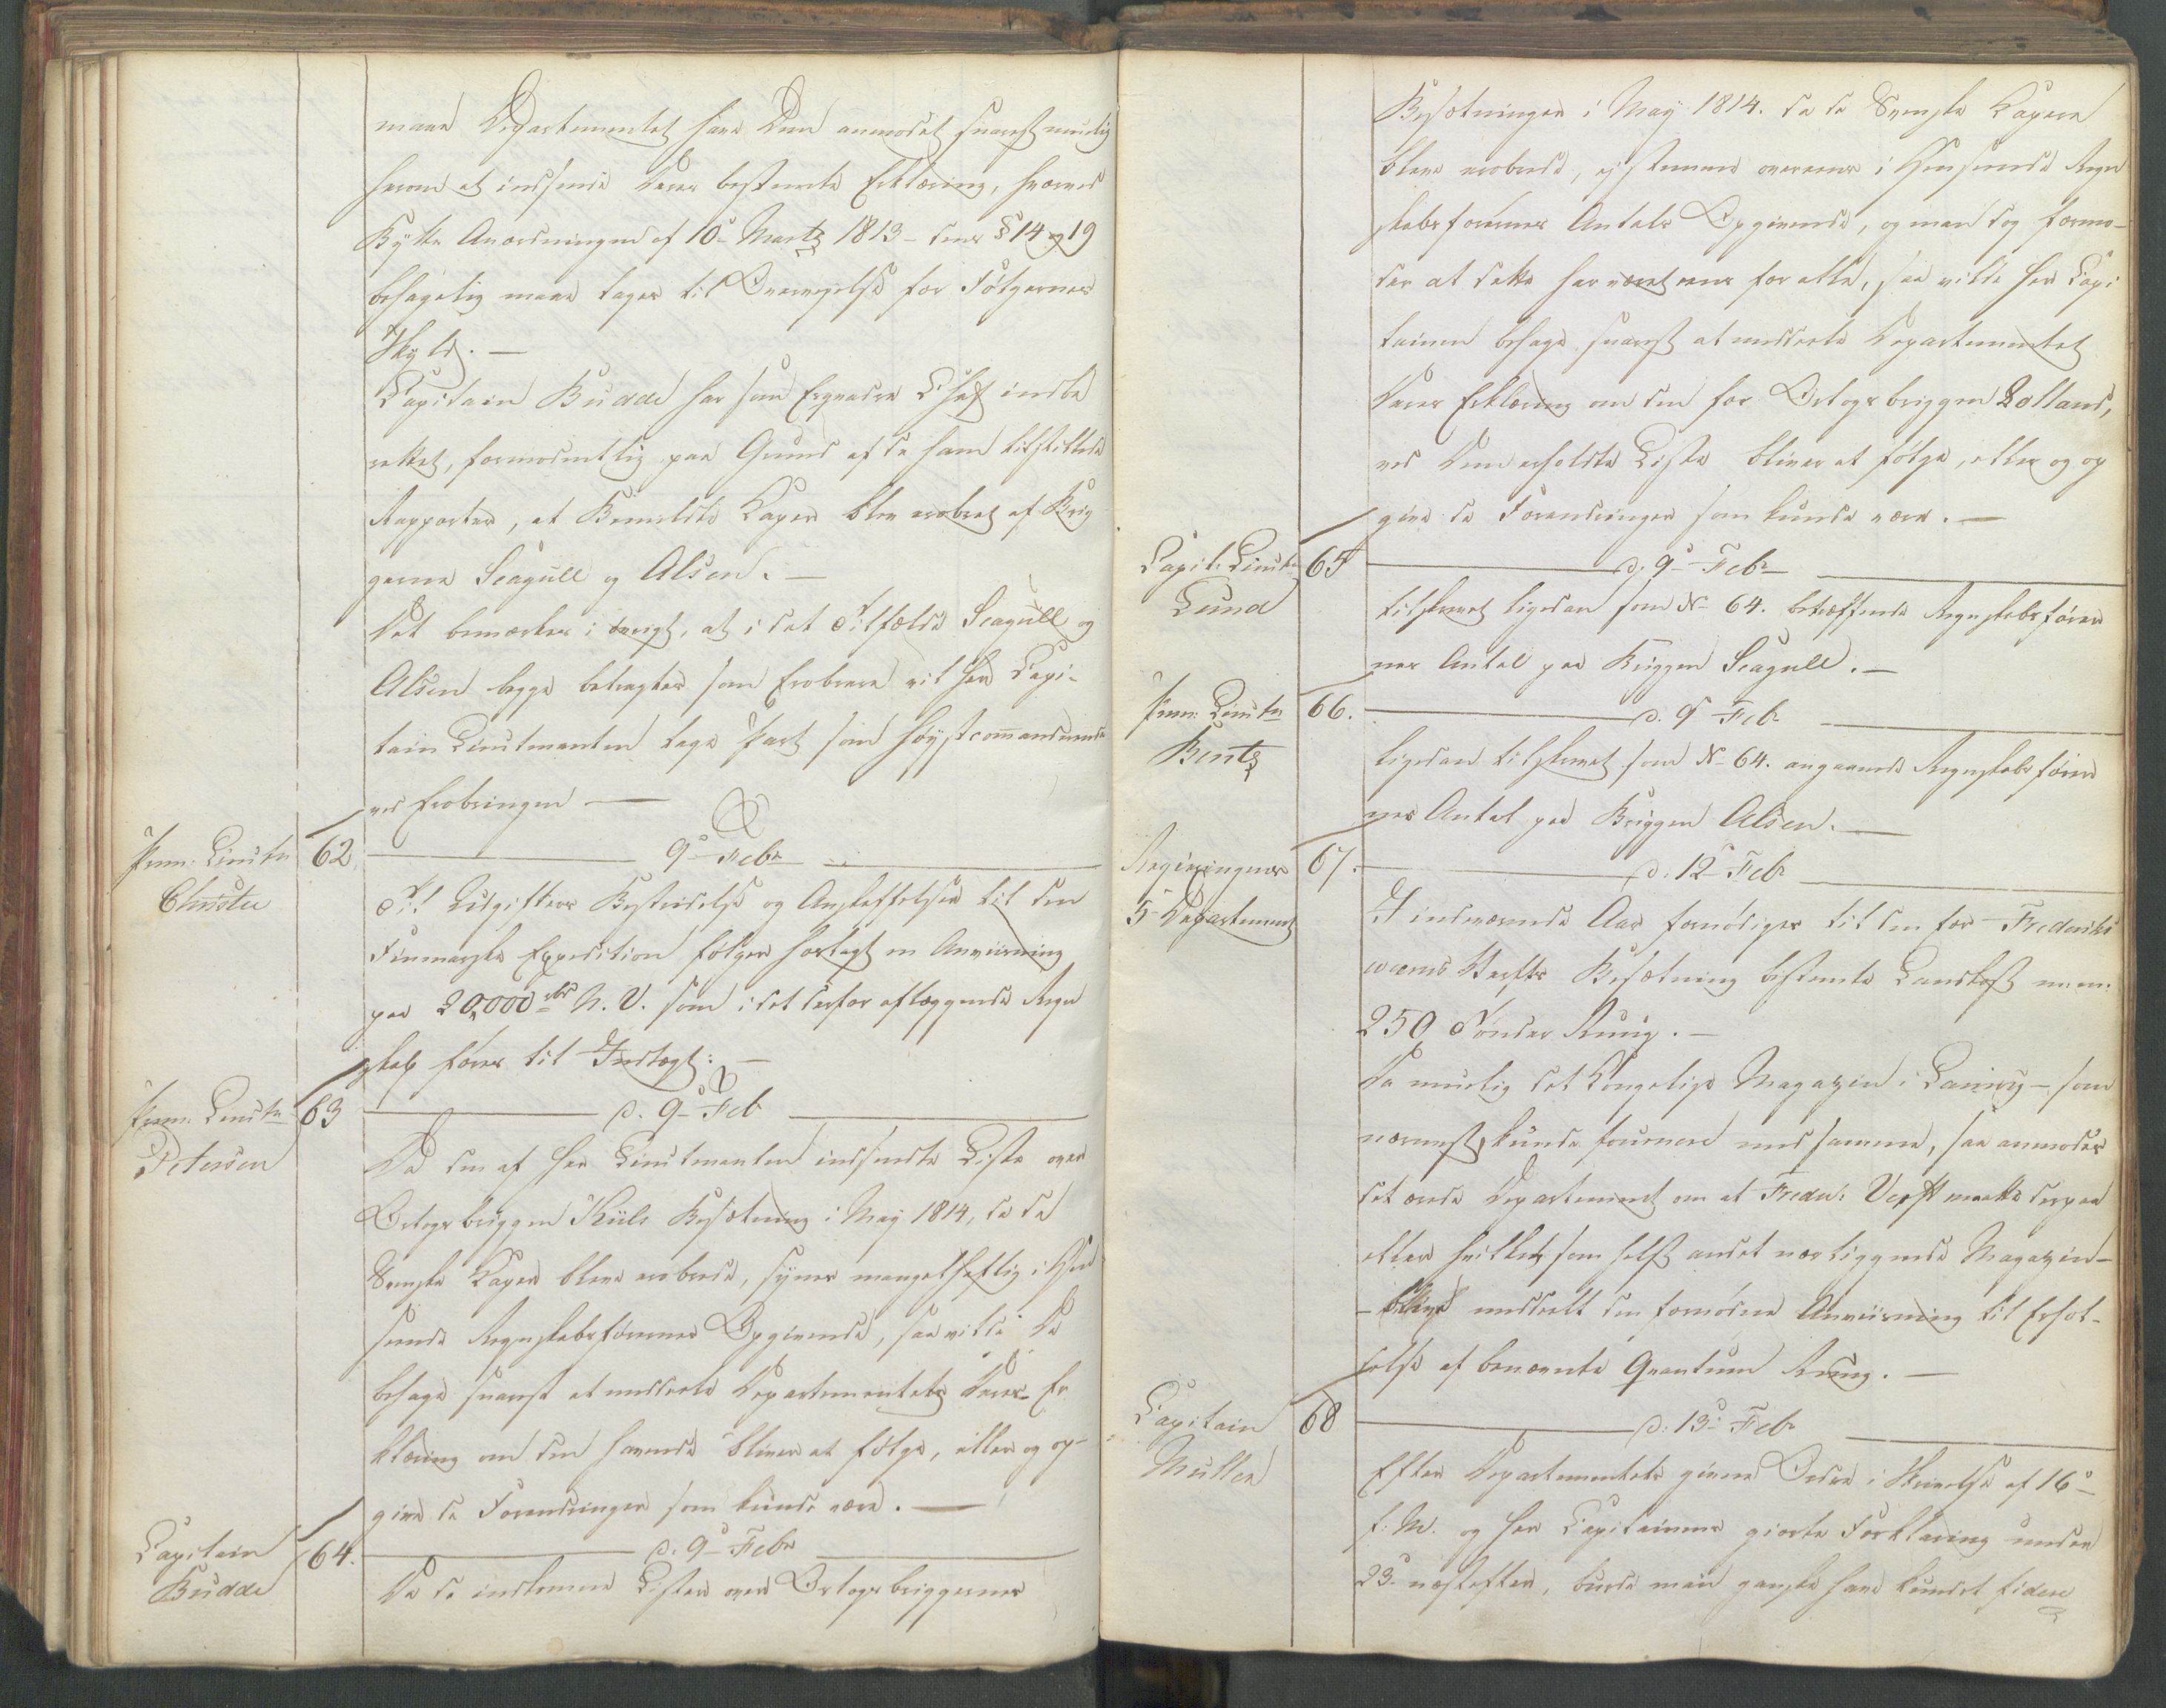 maae Departementet have Dem anmodet snarest muelig
herom at indsende Deres bestemte Erklæring, hvorved
Anordningen af 10de Martz 1813 – dens § 14 og 19
behagelig maae tages til Overveyelse for Følgernes
Skyld. —
Capitain Budde har som Esquadre Chef indbe
rettet, formodentlig paa Grund af de ham tilstillede
Rapporter, at Bemeldte Caper blev erobret af Brig
gerne Seagull og Alsen. —
Det bemærkes i øvrigt, at i det Tilfælde Seagull og
Alsen begge betragtes som Erobrere vil Herr Capi-
tain Lieutenanten tage Part som høystcommanderende
ved Erobringen —
Prem: Lieutn
Christie
62
9de Febr
Til Udgifters Bestridelse og Anskaffelser til den
Finmarske Expedition følger hoslagt en Anviisning
paa 20,000 rbd N. V. som i det derfor aflæggende Regn
skab føres til Indtægt: —
Prem: Lieutn
Petersen
63
d. 9de Feb
Da den af Herr Lieutenanten indsendte Liste over
Orlogsbriggen Kiels Besætning i May 1814, da de
Svenske Capere bleve erobrede, synes mangelhaftig i Hen
seende Regnskabsførernes Opgivende, saa vilde De
behage snarest at meddeele Departementet Deres Er
klæring om den havende bliver at følge, eller og op-
give de Forandringer som kunde være. —
Capitain
Budde
64.
d. 9de Febr
Da de indkomne Lister over Orlogsbriggernes
Besætninger i May 1814. da de Svenske Capere
bleve erobrede, ej stemmer overeens i Henseende Regn
skabsførernes Antals Opgivende, og man dog formo-
der at dette har været eens for alle, saa vilde Herr Capi
tainen behage snarest at meddeele Departementet
Deres Erklæring om den for Orlogsbriggen Lolland,
ved Dem erholdte Liste bliver at følge, eller og op
give de Forandringer som kunde være. —
Capit: Lieutn
Lund
65
d. 9de Febr
tilskrevet ligedan som No 64. betræffende Regnskabsfører
nes Antal paa Briggen Seagull. —
Prem: Lieutn
Bentz
66.
d. 9 Febr
ligedan tilskrevet som No 64. angaaende Regnskabsfører
nes Antal paa Briggen Alsen. —
Regieringens
5te Departement
67.
d. 12 Febr
I indeværende Aar fornødiges til den for Frederiks
værns Værfts Besætning bestemte Landkost m:m:
250 Tønder Rug. —
Da muelig det Kongelige Magazin i Laurvig – som
nærmest, kunde fournere med samme, saa anmodes
det ærede Departement om at Freder: Verft maatte derpaa
eller hvilket som helst andet nærliggende Magazin –
– blive meddeelt den fornødne Anviisning til Erhol-
delse af benævnte Qvantum Rug. —
Capitain
Müller
68
d. 13de Febr
Efter Departementets givne Ordre i Skrivelse af 16de
f: M. og Herr Capitainens giorte Forklaring under
23de næstefter, burde man ganske have kundet sidere